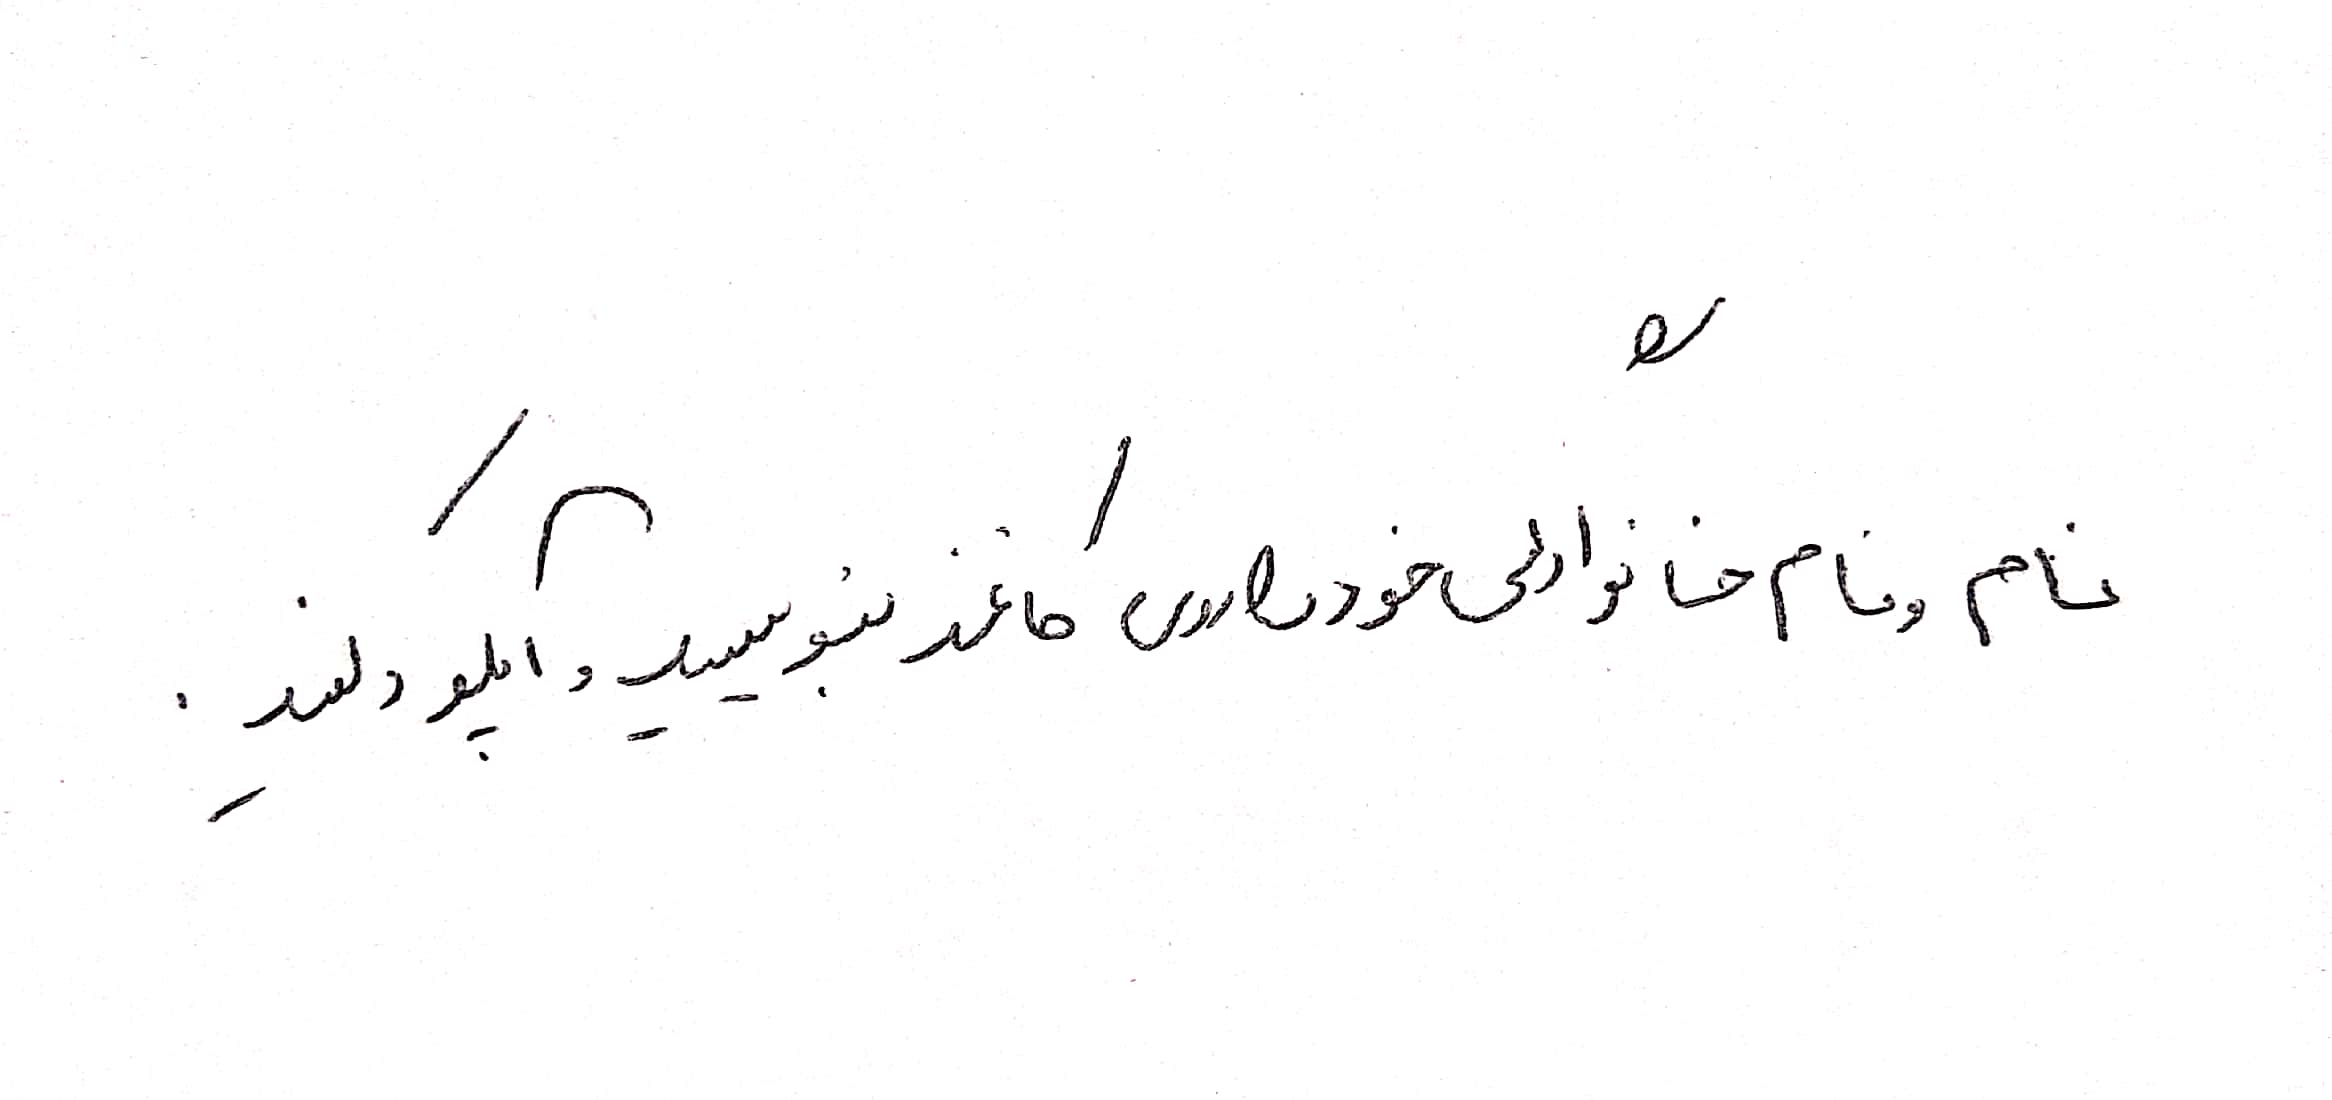 نام و نام خانوادگی خود را روی کاغذ بنویسید و آپلود کنید.